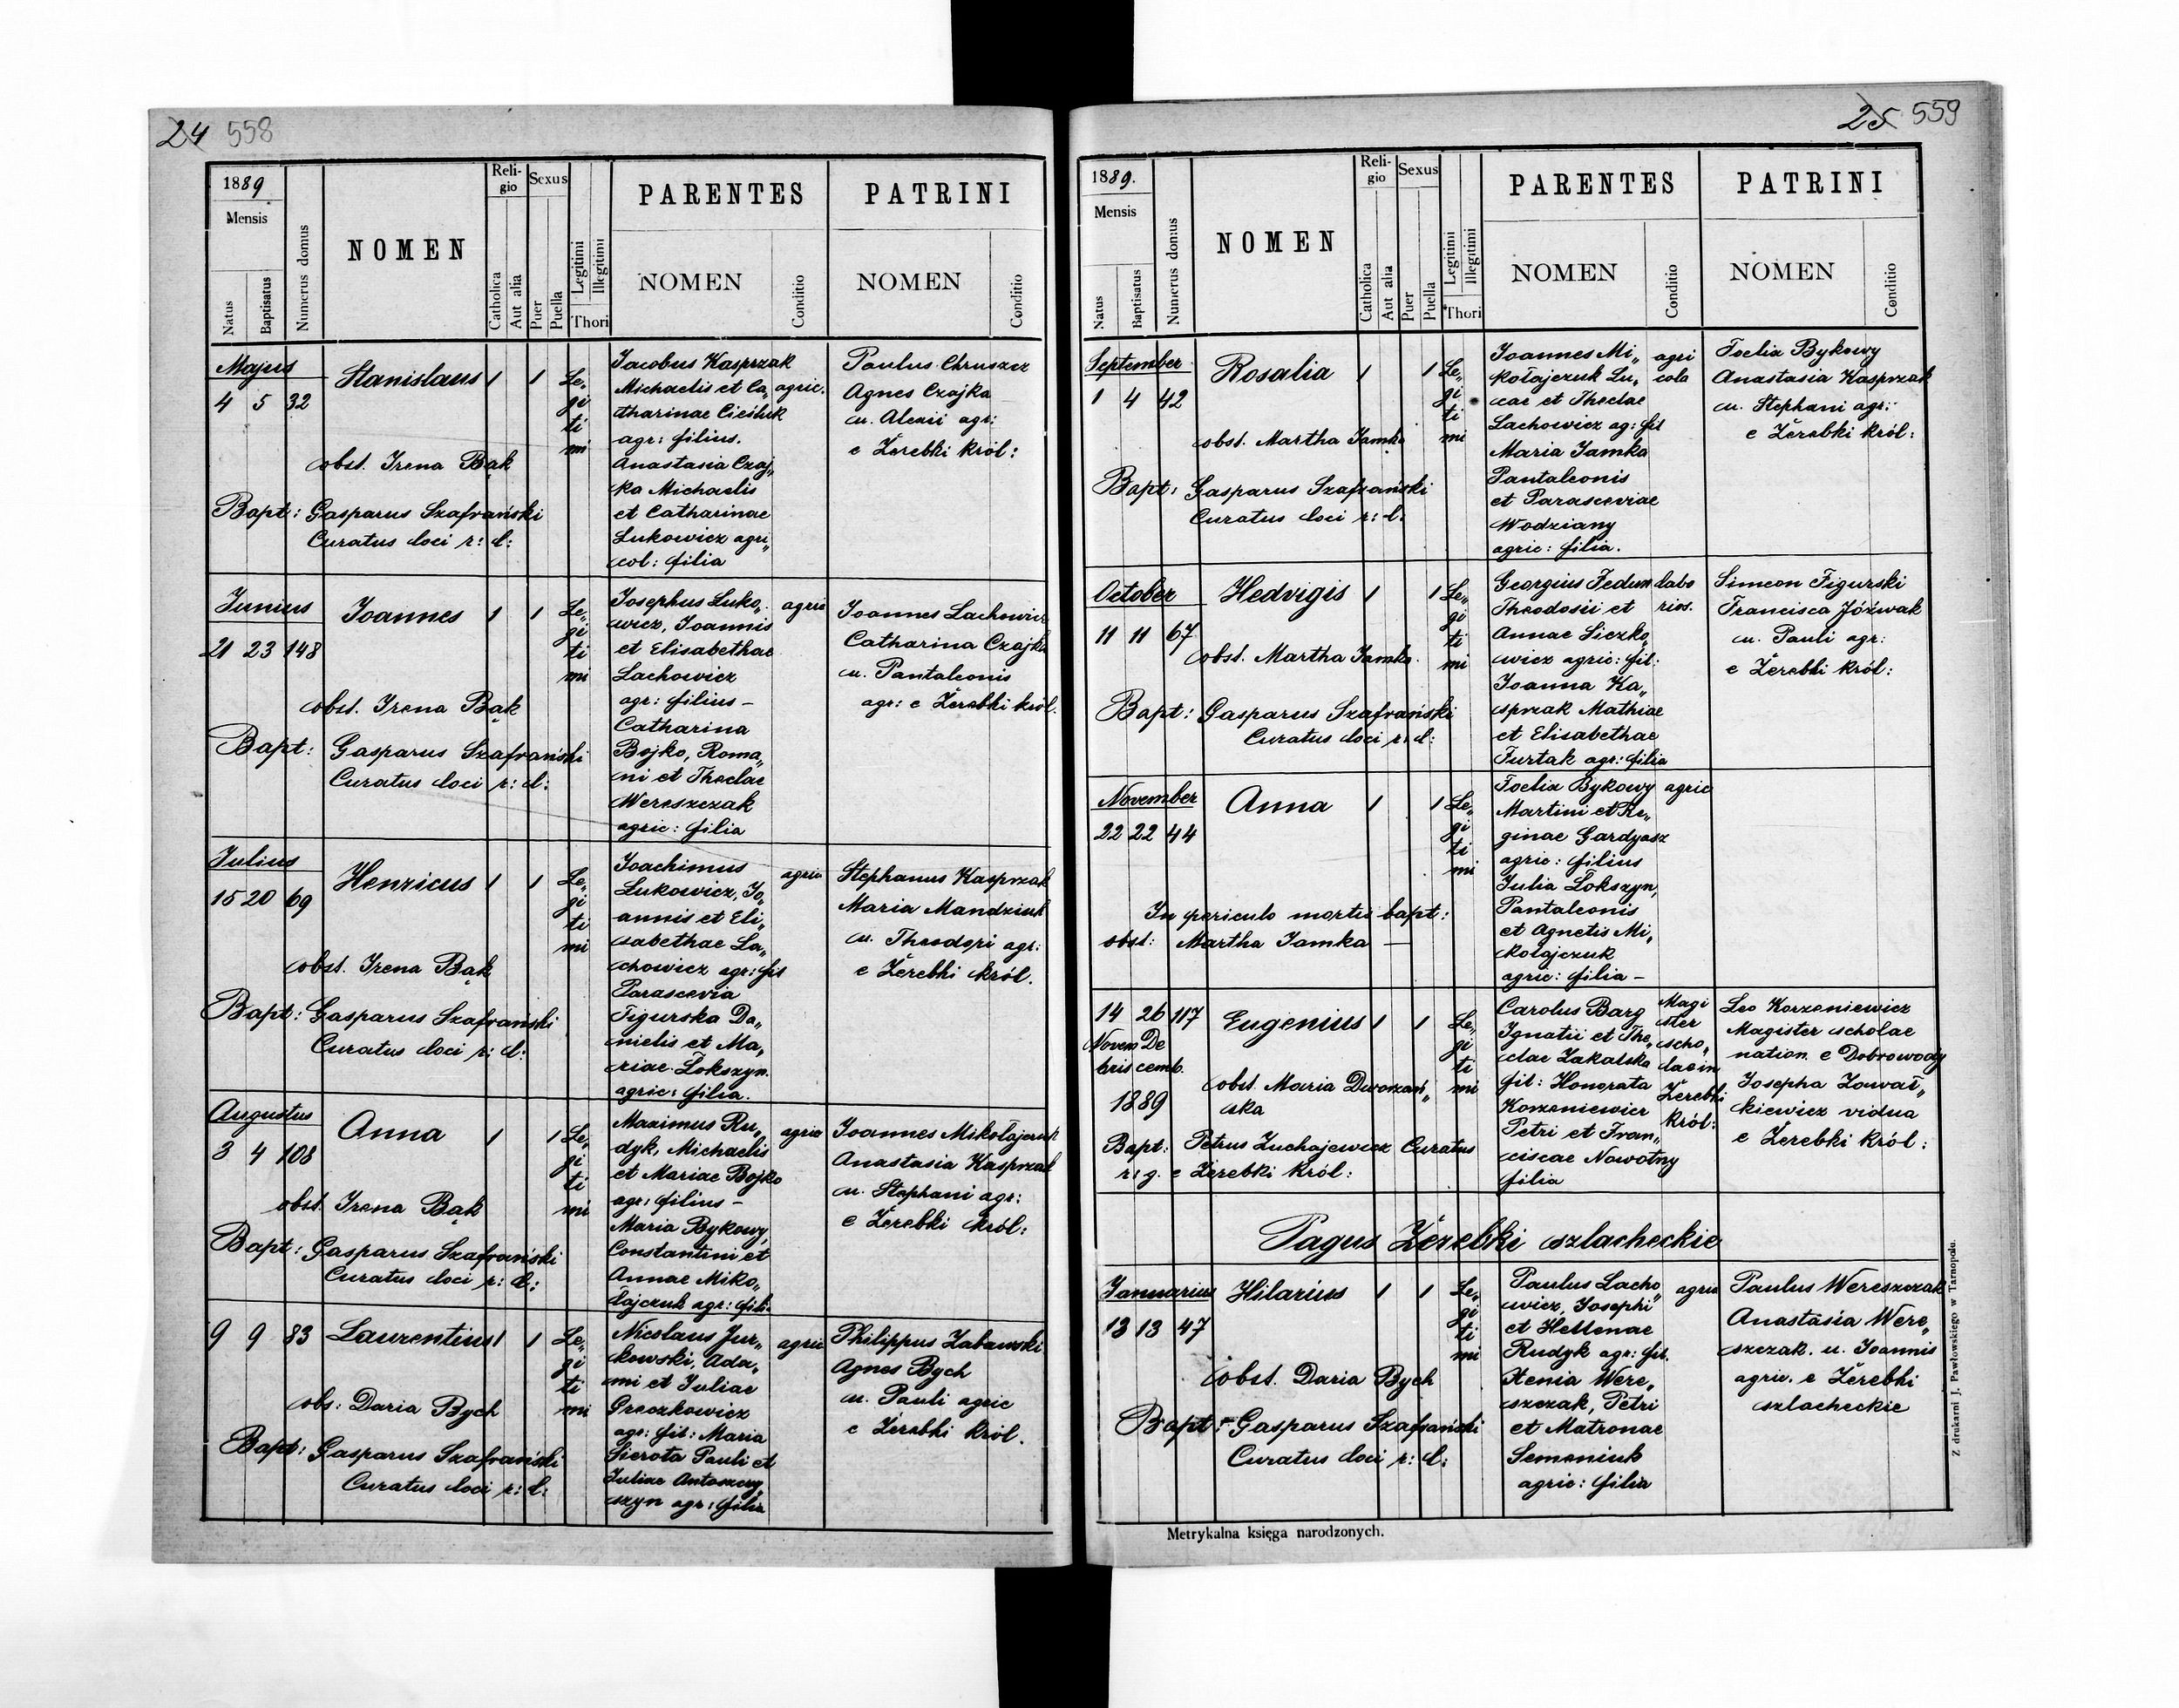 24 558
1889
Mensis
Natus
Baptisatus
Numerus domus
NOMEN
Religio
Catholica
Aut alia
Sexus
Puer
Puella
Legitimi
Illegitimi
Thori
PARENTES
NOMEN
Conditio
PATRINI
NOMEN
Conditio
Majus
4 5 32
Stanislaus 1 1
Le„
gi
ti
mi
obst. Irena Bąk
Bapt: Gasparus Szafrański
Curatus loci r: l:
Jacobus Kasprzak
Michaelis et Ca„
tharinae Cieśluk
agr: filius.
Anastasia Czaj„
ka Michaelis
et Catharinae
Lukowicz agri„
col: filia
agric.
Paulus Chruszcz
Agnes Czajka
u. Alexii agr:
e Żerebki król:
Junius
21 23 148
Joannes 1 1
Le„
gi
ti
mi
obst. Irena Bąk
Bapt: Gasparus Szafrański
Curatus loci r: l:
Josephus Luko„
wicz, Joannis
et Elisabethae
Lachowicz
agr: filius –
Catharina
Bojko, Roma„
ni et Theclae
Wereszczak
agric: filia
agric
Joannes Lachowicz
Catharina Czajka
u. Pantaleonis
agr: e Żerebki król.
Julius
15 20 69
Henricus 1 1
Le„
gi
ti
mi
obst. Irena Bąk
Bapt: Gasparus Szafrański
Curatus loci r: l:
Joachimus
Lukowicz, Jo„
annis et Eli„
sabethae La„
chowicz agr: fil
Parascevia
Figurska Da„
nielis et Ma„
riae Łokszyn.
agric: filia.
agric
Stephanus Kasprzak
Maria Mandziuk
u. Theodori agr:
e Żerebki król.
Augustus
3 4 108
Anna 1 1
Le„
gi
ti
mi
obst. Irena Bąk
Bapt: Gasparus Szafrański
Curatus loci r: l:
Maximus Ru„
dyk, Michaelis
et Mariae Bojko
agr: filius –
Maria Bykowy,
Constantini et
Annae Miko„
łajczuk agr: fili
agric
Joannes Mikołajczuk
Anastasia Kasprzak
u. Stephani agr:
e Żerebki król:
9 9 83
Laurentius 1 1
Le„
gi
ti
mi
obs: Daria Bych
Bapt: Gasparus Szafrański
Curatus loci r: l:
Nicolaus Jur„
kowski, Ada„
mi et Juliae
Greczkowicz
agr: fil: Maria
Sierota Pauli et
Juliae Antoszczy„
szyn agr: filia
agric
Philippus Zabawski
Agnes Bych
u. Pauli agric
e Żerebki król.
25 559
1889.
Mensis
Natus
Baptisatus
Numerus domus
NOMEN
Religio
Catholica
Aut alia
Sexus
Puer
Puella
Legitimi
Illegitimi
Thori
PARENTES
NOMEN
Conditio
PATRINI
NOMEN
Conditio
September
1 4 42
Rosalia 1 1
Le„
gi
ti
mi
obst. Martha Jamka
Bapt: Gasparus Szafrański
Curatus loci r: l:
Joannes Mi„
kołajczuk Lu„
cae et Theclae
Lachowicz ag: fil
Maria Jamka
Pantaleonis
et Parasceviae
Wodziany
agric: filia.
agri
cola
Foelix Bykowy
Anastasia Kasprzak
u. Stephani agr:
e Żerebki król:
October
11 11 67
Hedvigis 1 1
Le„
gi
ti
mi
obst. Martha Jamka.
Bapt: Gasparus Szafrański
Curatus loci r: l:
Georgius Fedun
Theodosii et
Annae Liczko„
wicz agric: fil:
Joanna Ka„
sprzak Mathiae
et Elisabethae
Furtak agr: filia
labo
rios.
Simeon Figurski
Francisca Jóźwak
u. Pauli agr:
e Żerebki król:
November
22 22 44
Anna 1 1
Le„
gi
ti
mi
In periculo mortis bapt:
obst: Martha Jamka –
Foelix Bykowy
Martini et Re„
ginae Gardyasz
agric: filius
Julia Łokszyn,
Pantaleonis
et Agnetis Mi„
kołajczuk
agric: filia –
agric
14 26 117
Novem De
bris cemb.
1889
Eugenius 1 1
Le„
gi
ti
mi
obst. Maria Dworzań„
ska
Bapt: Petrus Zuchajewicz Curatus
r: g. e Żerebki Król:
Carolus Barg
Ignatii et The„
clae Zakalska
fil: Honorata
Korzeniewicz
Petri et Fran„
ciscae Nowotny
filia
Magi
ster
scho„
lae in
Żerebki
król:
Leo Korzeniewicz
Magister scholae
nation. e Dobrowody
Josepha Zawał„
kiewicz vidua
e Żerebki król:
Pagus Żerebki szlacheckie
Januarius
13 13 47
Hilarius 1 1
Le„
gi
ti
mi
obst. Daria Bych
Bapt: Gasparus Szafrański
Curatus loci r: l:
Paulus Lacho„
wicz, Josephi
et Hellenae
Rudyk agr: fil.
Xenia Were„
szczak, Petri
et Matronae
Semeniuk
agric: filia
agric
Paulus Wereszczak
Anastasia Were„
szczak. u. Joannis
agric. e Żerebki
szlacheckie
Z drukarni J. Pawłowskiego w Tarnopolu.
Metrykalna księga narodzonych.